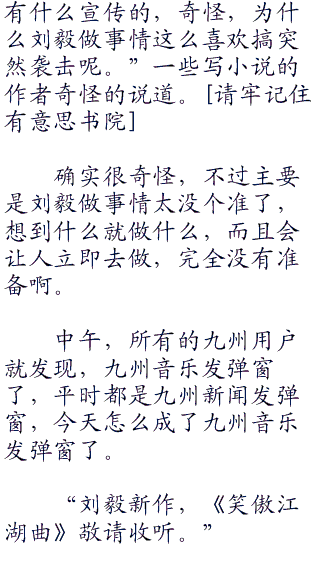 有什么宣传的，奇怪，为什
么刘毅做事情这么喜欢搞突
然袭击呢。”一些写小说的
作者奇怪的说道。[请牢记住
有意思书院]
确实很奇怪，不过主要
是刘毅做事情太没个准了，
想到什么就做什么，而且会
让人立即去做，完全没有准
备啊。
中午，所有的九州用户
就发现，九州音乐发弹窗
了，平时都是九州新闻发弹
窗，今天怎么成了九州音乐
发弹窗了。
“刘毅新作，《笑傲江
湖曲》敬请收听。”